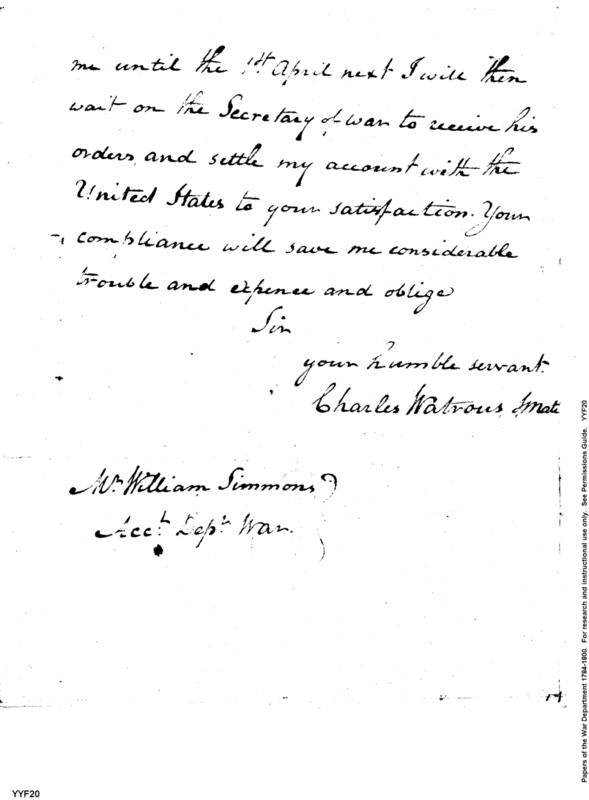 me until the 1st April next I will then
wait on the Secretary of war to receive his
orders, and settle my account with the
United States to your satisfaction. Your
compliance will save me considerable
trouble and expence and oblige
Sir
your humble servant.
Charles Watrous, Smate
Mr. William Simmons
Acct. Dept. War.
Papers of the War Department 1784-1800. For research and instructional use only. See Permissions Guide. YYF20
YYF20